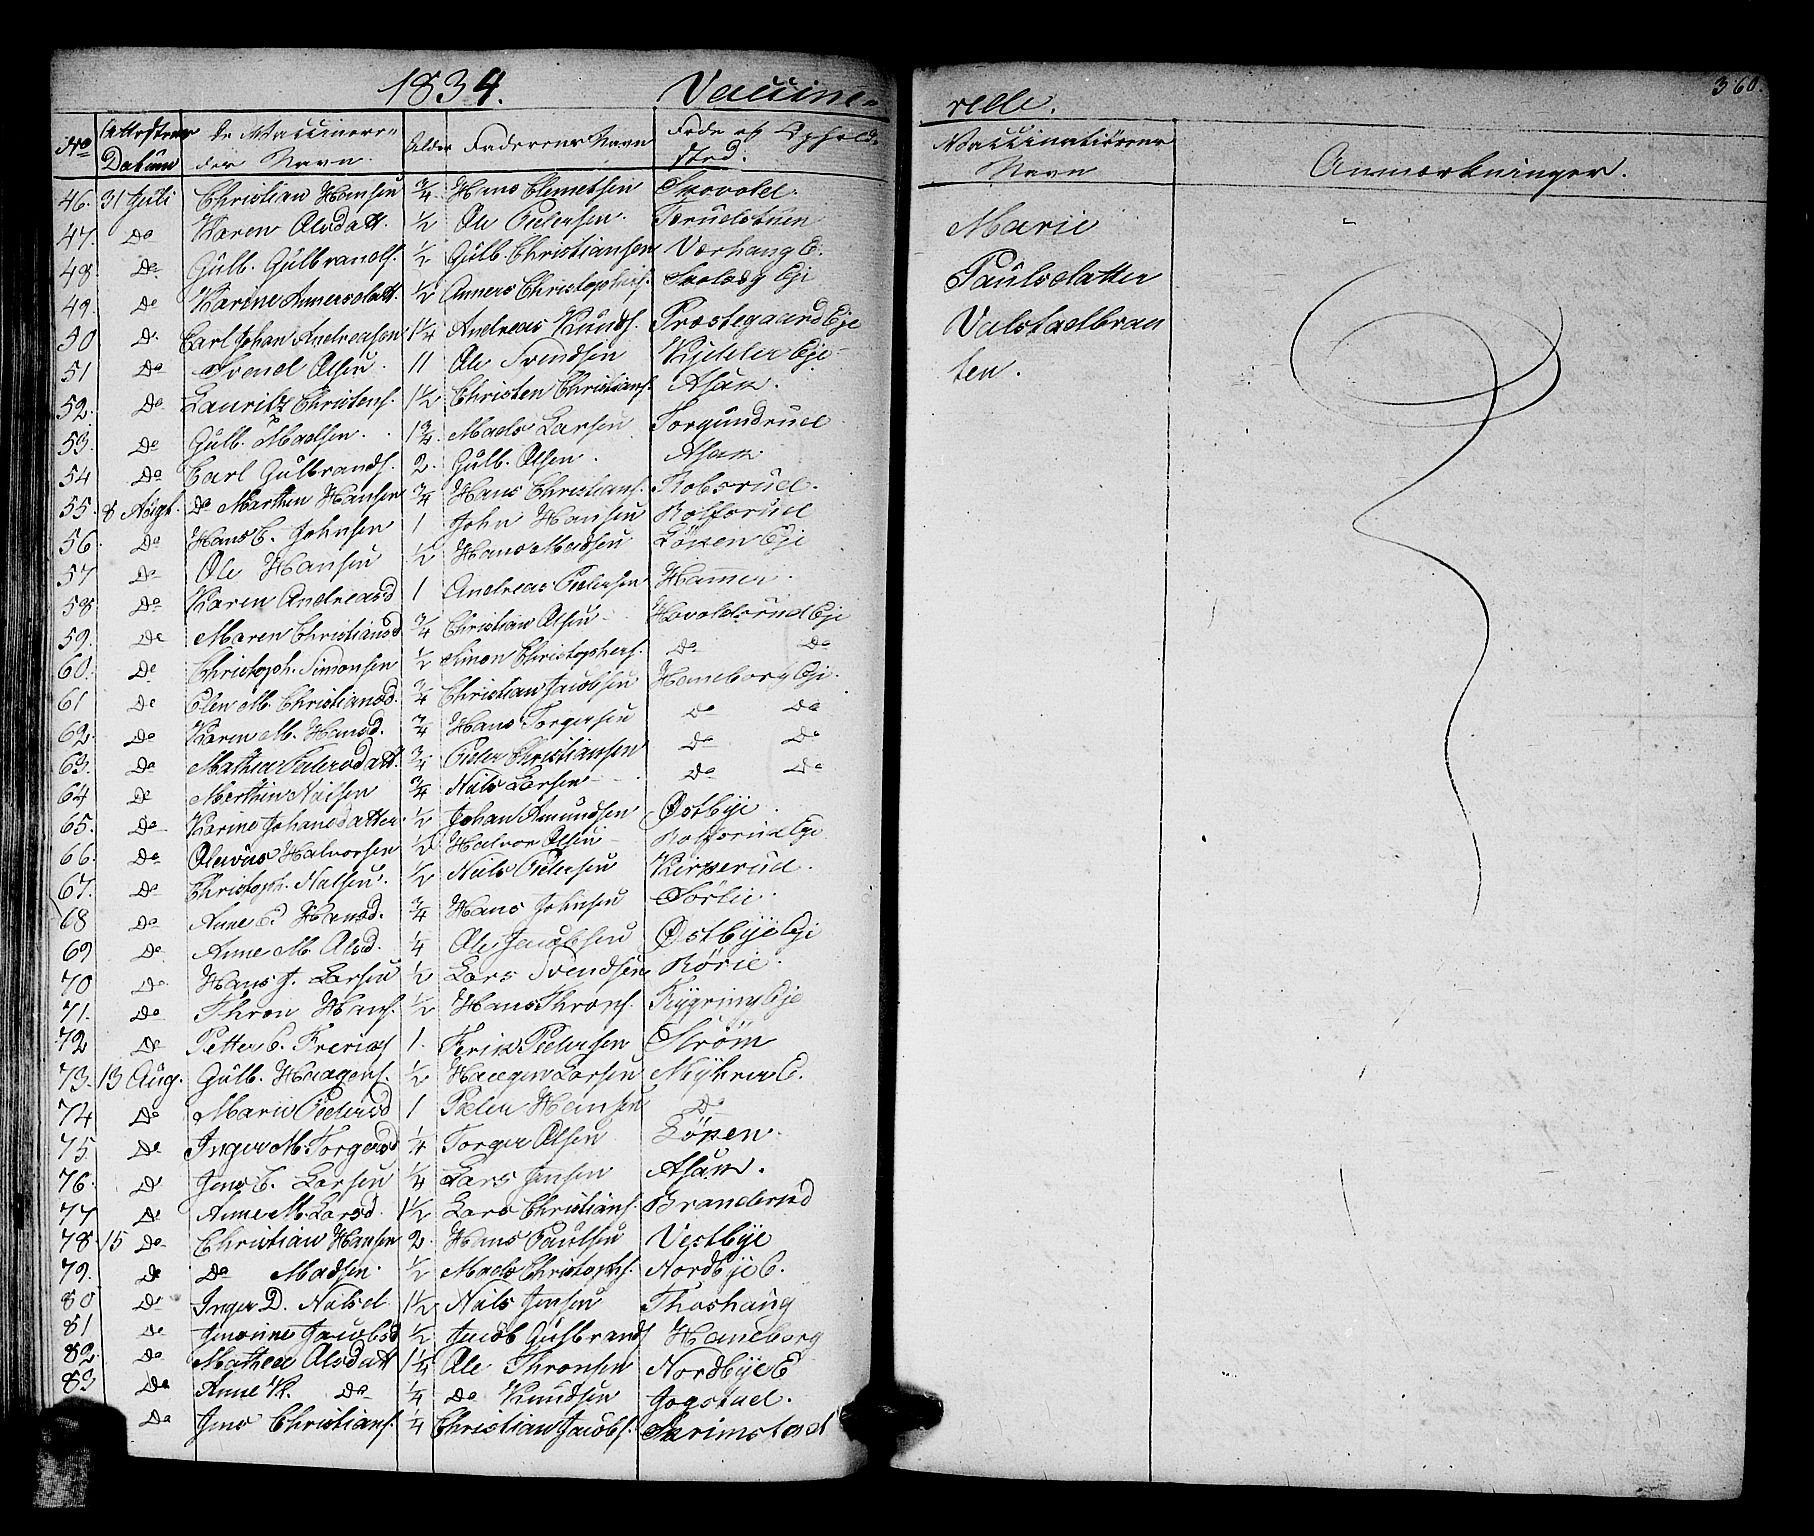 1834. Vaccine-
No Attestens Datum De Vaccinere- des Navn. Alder Faderens Navn Føde og Opholds sted.
46. 31 Juli Christian Hansen 3/4 Hans Clemetsen Skovold.
47. Do Karen Olsdatt. 1/2 Ole Pedersen. Trudstuen
48. Do Gulb. Gulbrands. 1/2 Gulb. Christiansen Værhang E.
49. Do Karine Annersdatt. 1/2 Anners Christophers. Eje
50 Do Carl Johan Andreasen 1 1/4 Andreas Knuds. Præstegaard Eje
51 Do Svend Olsen. 11 Ole Svendsen Kjelder Eje
52. Do Lauritz Christens. 1 1/2 Christen Christians. Asak.
53. Do Gulb. Madsen. 1 3/4 Mads Larsen Torgundrud
54 Do Carl Gulbrands. 2. Gulb. Olsen. Asak
55. 8 Augt. Do Marthin Hansen 3/4 Hans Christians. Kobsrud.
56. Do Hans C. Johnsen 1 John Hansen Rolfsrud
57 Do Ole Hansen 1/2 Hans Madsen Löken Eje
58 Do Karen Andreasd 1 Andreas Pedersen Hammer.
59. Do Maren Christiansd 3/4 Christian Olsen Hovoldsrud Eje
60. Do Christoph. Simonsen 1/2 Simon Christophers. Do Do
61 Do Elen M. Christiansd. 3/4 Christian Jacobsen Haneborg Eje.
62. Do Karen M. Hansd. 3/4 Hans Torgersen Do Do
63. Do Mathea Pedersdatt. 3/4 Peder Christiansen Do Do
64 Do Marthin Nilsen 3/4 Nils Larsen Do Do
65. Do Karine Johansdatter. 1/2 Johan Amundsen Østbye.
66. Do Olavus Halvorsen 1/2 Halvor Olsen Rolfsrud Eje
67. Do Christoph. Nilsen. 1/2 Nils Pedersen Kirkerud.
68 Do Anne C. Hansd. 3/4 Hans Johnsen Sørlie.
69 Do Anne M. Olsd. 1/4 Ole Jacobsen Østbye Eje
70 Do Hans J. Larsen 1/2 Lars Svendsen Rørie.
71. Do Thron Hans. 1/2 Hans Throns. Rygring Eje
72 Do Petter C. 1. Pedersen Strøm
73. 13 Aug. Gulb. Haagens. 1/2 Haagen Larsen Mykrer E.
74 Do Marie Pedersd 1 Peder Hansen Do
75. Do Inger M. Torgersd 1/4 Torger Olsen Löken.
76. Do Jens C. Larsen 1/4 Lars Jensen Asak.
77 Do Anne M. Larsd. 1 1/2 Lars Christians. Branderud
78. 15 Do Christian Hansen 2. Hans Paulsen Vestbye
79. Do Do Madsen. 1/2 Mads Christophs. Nordbye E.
80 Do Inger D. Nilsd 1 1/2 Nils Jensen Thoshaug
81 Do Jensine Jacobsd 1/2 Jacob Gulbrands Haneborg
82. Do Mathea Olsdatt 1 1/4 Ole Thronsen Nordbye E
83 Do Anne K. Do 1/4 Do Knudsen Jogstad.
Do Jens Christians. 1/4 Christian Jacobs. Skrimstad
360.
relle.
Vaccinatiörens Navn Anmærkninger.
Marie
Paulsdatter
Valstadbraa
ten.